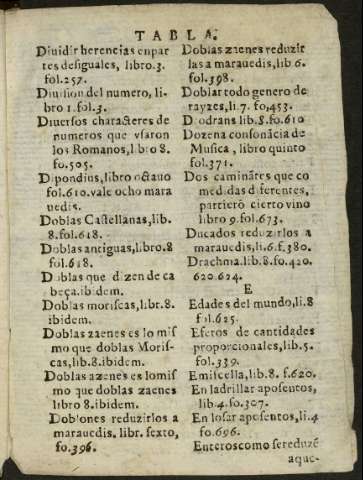 TABLA.
Diuidir herencias en par
tes desiguales, libro.3.
fol.257.
Diuision del numero, li-
bro 1.fol.3.
Diuersos characteres de
numeros que vsaron
los Romanos, libro 8.
fo.505.
Dipondius, libro octauo
fol.610.vale ocho mara
uedis.
Doblas Castellanas, lib.
8.fol.618.
Doblas antiguas, libro.8
fol.618.
Doblas que dizen de ca
beça.ibidem.
Doblas moriscas, libr.8.
ibidem.
Doblas zaenes es lo mis
mo que doblas Moris-
cas, lib.8.ibidem.
Doblas azenes es lo mis
mo que doblas zaenes
libro 8.ibidem.
Doblones reduzirlos a
marauedis. libr. sexto,
fo.396.
Doblas zaenes reduzir
las a marauedis, lib 6.
fol.398.
Doblar todo genero de
rayzes, li.7. fo,453.
Dodrans lib.8.fo.610
Dozena consonãcia de
Musica, libro quinto
fol.371.
Dos caminãtes que co
medidas diferentes,
partierõ cierto vino
libro 9.fol.673.
Ducados reduzirlos a
marauedis, li.6.f.380.
Drachma.lib.8.fo.420.
620.624.
E
Edades del mundo, li.8
fol.625.
Efetos de cantidades
proporcionales, lib.5.
fol.339.
Emissella, lib.8. f.620.
En ladrillar aposentos,
lib.4.fo.307.
En losar aposentos, li.4
fo.696.
Enteros como se reduzẽ
a que-